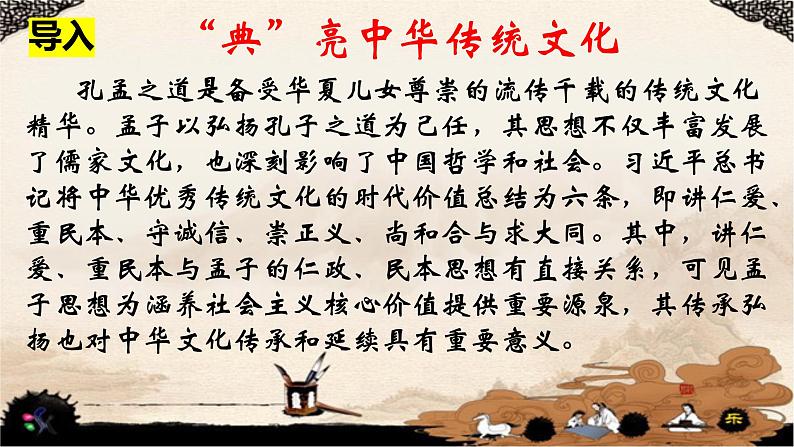 导入
“典”亮中华传统文化
孔孟之道是备受华夏儿女尊崇的流传千载的传统文化
精华。孟子以弘扬孔子之道为己任，其思想不仅丰富发展
了儒家文化，也深刻影响了中国哲学和社会。习近平总书
记将中华优秀传统文化的时代价值总结为六条，即讲仁爱、
重民本、守诚信、崇正义、尚和合与求大同。其中，讲仁
爱、重民本与孟子的仁政、民本思想有直接关系，可见孟
子思想为涵养社会主义核心价值提供重要源泉，其传承弘
扬也对中华文化传承和延续具有重要意义。
乐